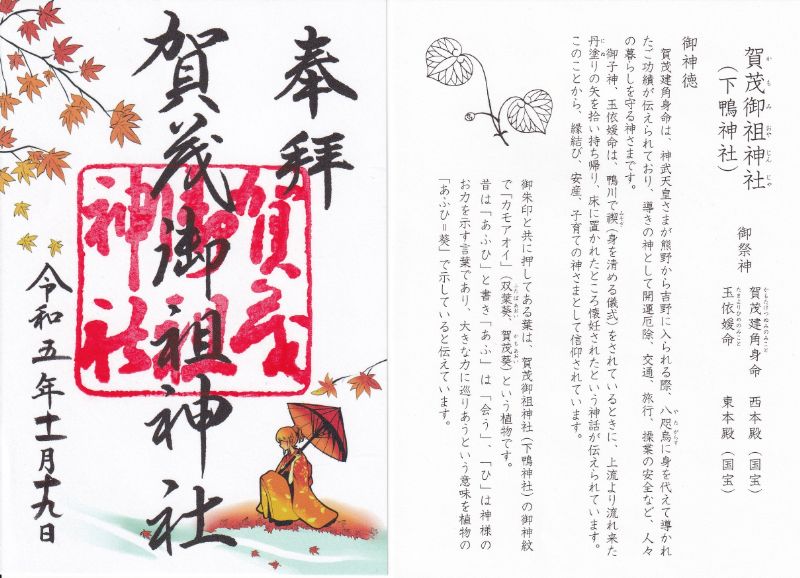 奉拝
賀茂御祖神社
賀茂
御祖
神社
令和五年十一月十九日
賀茂御祖神社
かもみおやじんじゃ
（下鴨神社）
御祭神
賀茂建角身命　西本殿（国宝）
かもたけつぬみのみこと
玉依媛命　東本殿（国宝）
たまよりひめのみこと
御神徳
賀茂建角身命は、神武天皇さまが熊野から吉野に入られる際、八咫烏に身を代えて導かれ
やたがらす
たご功績が伝えられており、導きの神として開運厄除、交通、旅行、操業の安全など、人々
の暮らしを守る神さまです。
御子神、玉依媛命は、鴨川で禊（身を清める儀式）をされているときに、上流より流れ来た
みそぎ
丹塗りの矢を拾い持ち帰り、床に置かれたところ懐妊されたという神話が伝えられています。
にぬ
このことから、縁結び、安産、子育ての神さまとして信仰されています。
御朱印と共に押してある葉は、賀茂御祖神社（下鴨神社）の御神紋
で「カモアオイ」（双葉葵、賀茂葵）という植物です。
ふたばあおい
かもあおい
昔は「あふひ」と書き「あふ」は「会う」、「ひ」は神様の
お力を示す言葉であり、大きな力に巡りあうという意味を植物の
「あふひ＝葵」で示していると伝えています。